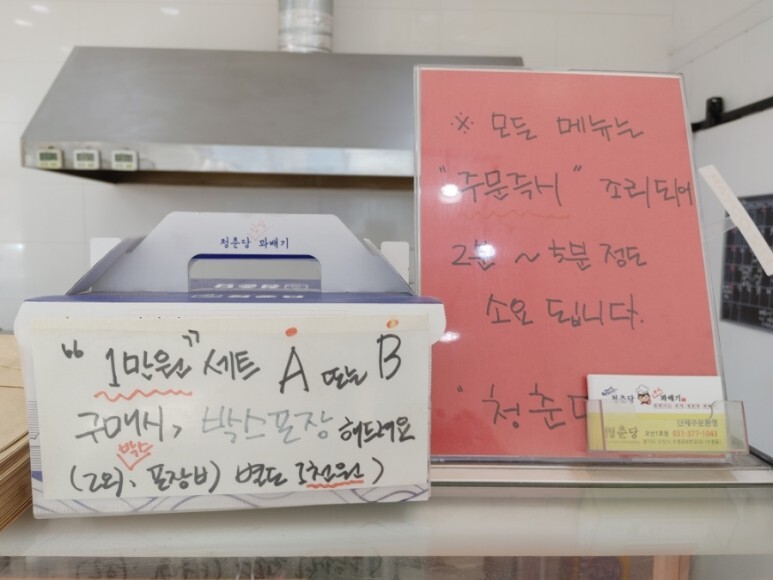 청춘당 꽈배기
“1만원” 세트 A 또는 B
구매시, 박스포장 해드려요
박스
(그외, 포장비 별도 1천원)
※ 모든 메뉴는
"주문즉시" 조리되어
2분 ~ 5분 정도
소요 됩니다.
청춘
청춘당 꽈배기
청춘당
단체주문환영
031-377-1043